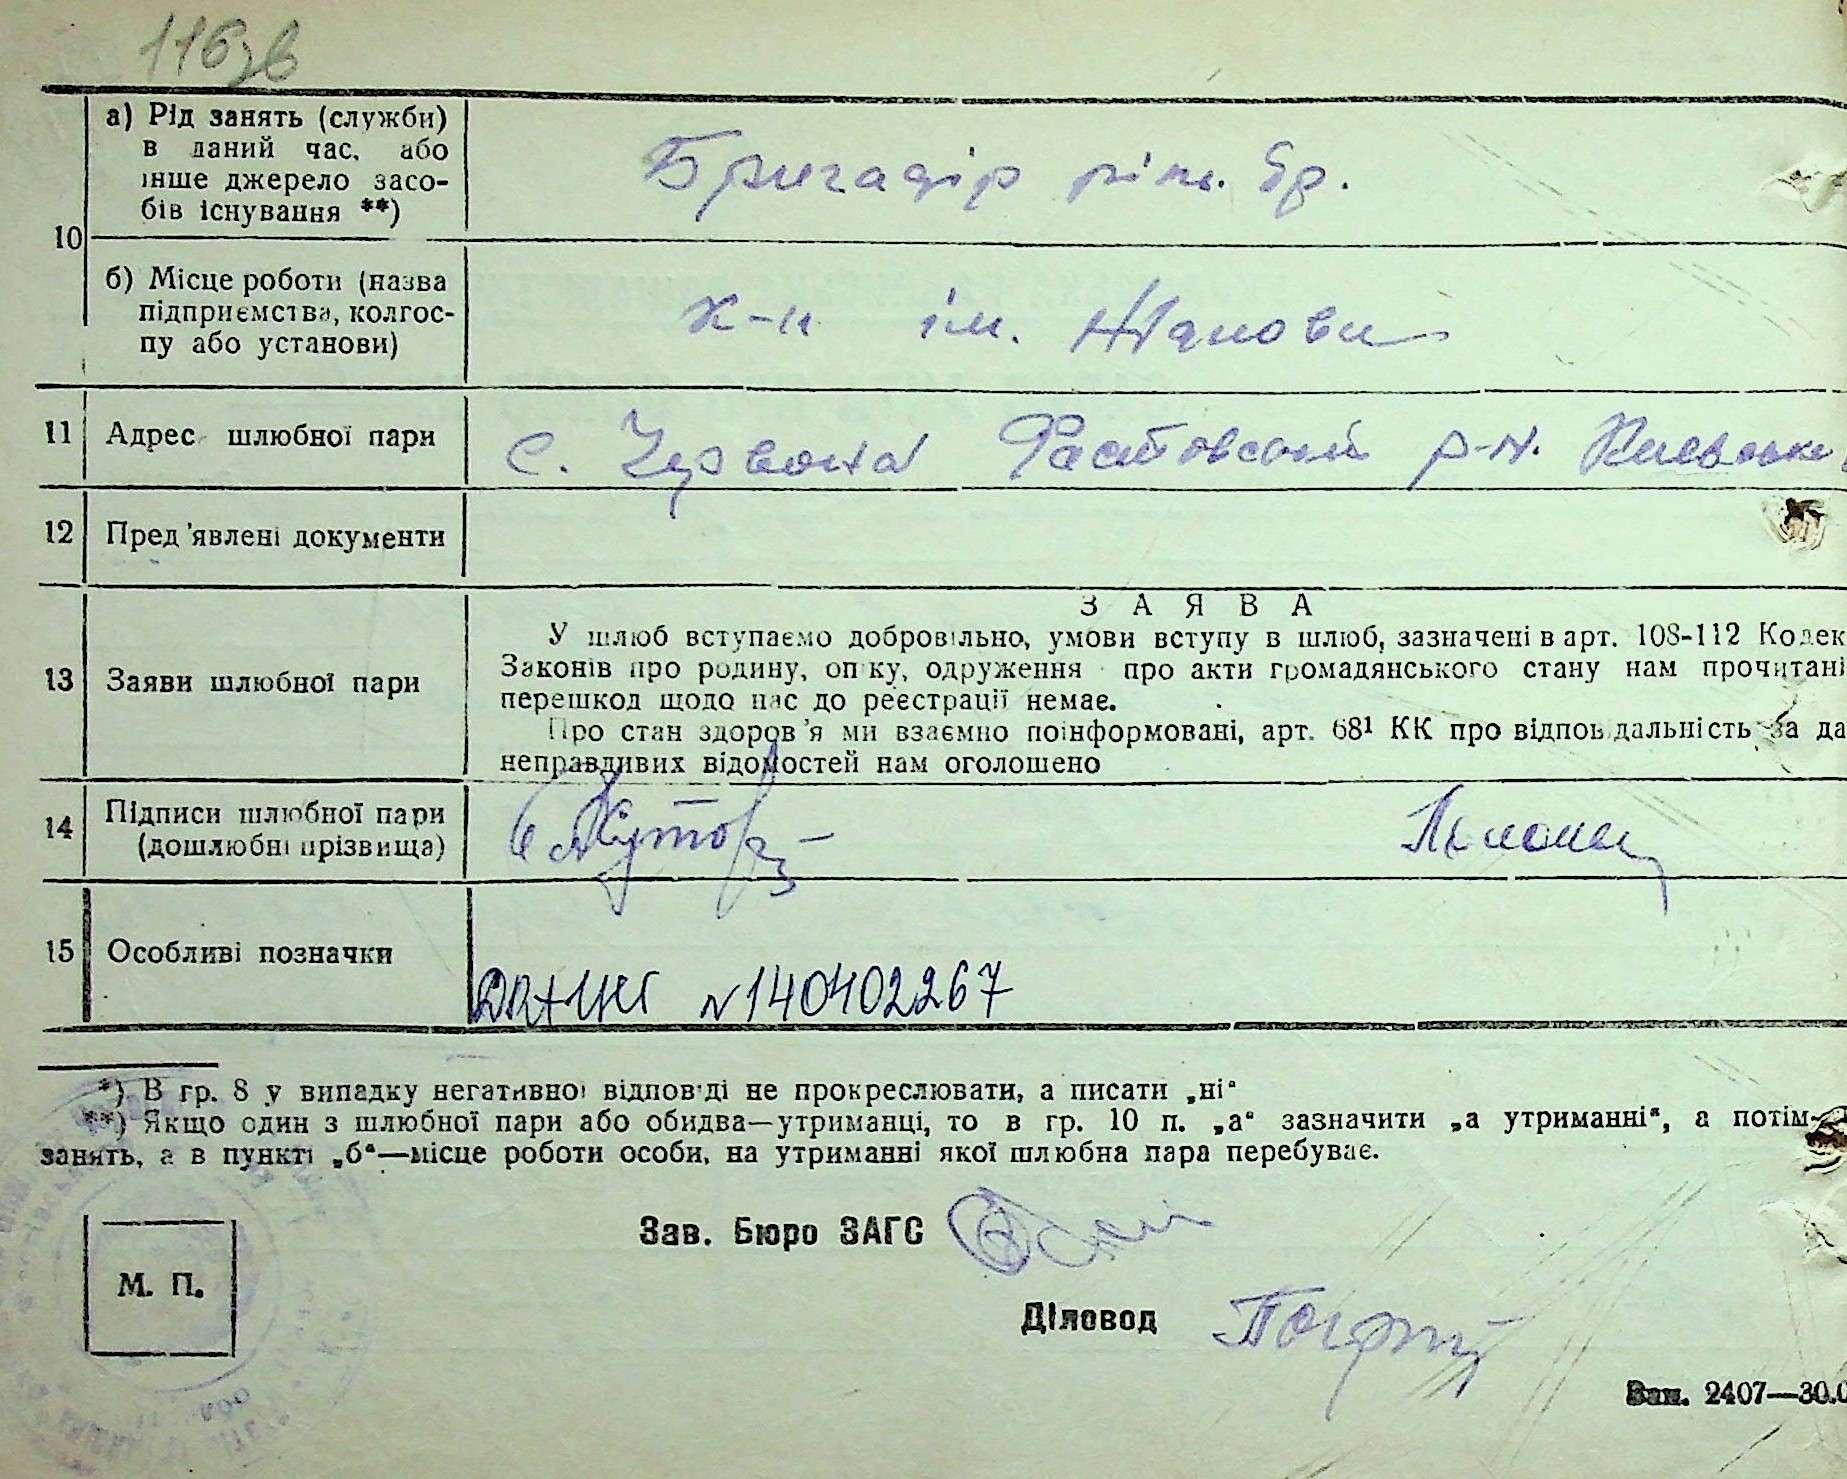 116зв
10
а) Рід занять (служби)
в даний час, або
інше джерело засо-
бів існування **)
Бригадір ріль. бр.
б) Місце роботи (назва
підприємства, колгос-
пу або установи)
к-п ім.
11
Адрес шлюбної пари
с. Червона Фастовский р-н.
12
Пред'явлені документи
13
Заяви шлюбної пари
ЗАЯВА
У шлюб вступаємо добровільно, умови вступу в шлюб, зазначені в арт. 108-112 Кодек
Законів про родину, опіку, одруження про акти громадянського стану нам прочитані
перешкод щодо нас до реєстрації немає.
Про стан здоров'я ми взаємно поінформовані, арт. 68¹ КК про відповідальність за да
неправдивих відомостей нам оголошено
14
Підписи шлюбної пари
(дошлюбні прізвища)
15
Особливі позначки
№140402267
*) В гр. 8 у випадку негативної відповіді не прокреслювати, а писати „ні“
**) Якщо один з шлюбної пари або обидва—утриманці, то в гр. 10 п. „а“ зазначити „а утриманні“, а потім—
занять, а в пункті „б“—місце роботи особи, на утриманні якої шлюбна пара перебуває.
Зав. Бюро ЗАГС
М. П.
Діловод
Зам. 2407—30.0